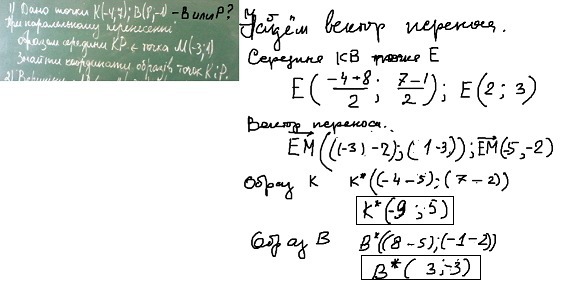 1) Дано точки К(-4;7); В(8;-1) - В или Р?
При паралельному перенесенні
образом середини КР є точка М(-3;1)
Знайти координати образів точок К і Р.
Найдём вектор переноса.
Середина КВ точка Е
E(-4+8/2; 7-1/2); E(2; 3)
Вектор переноса.
EM((-3)-2);(1-3)); EM(-5,-2)
Образ К K*((-4-5);(7-2))
K*(-9;5)
Образ В B*((8-5);(-1-2))
B*(3;-3)